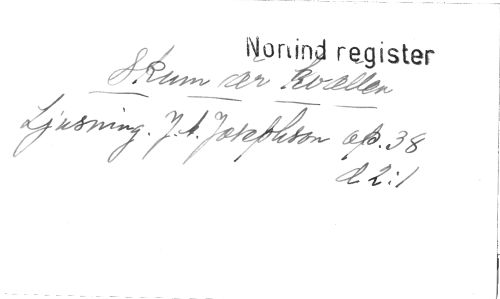 Norlind register
Skum är kvällen
Ljusning. J.A. Josephson op. 38
d 2:1